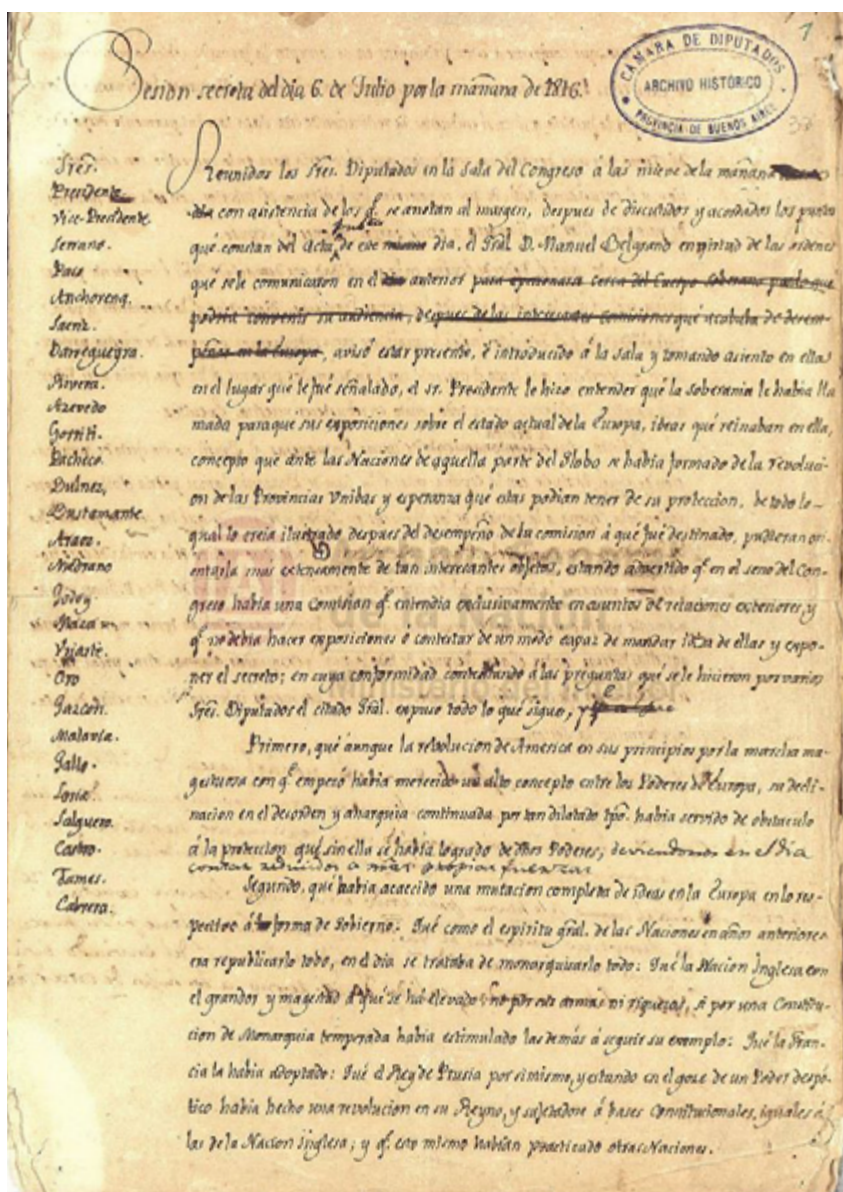 Sesion secreta del dia 6. de Julio por la mañana de 1816.
CAMARA DE DIPUTADOS
ARCHIVO HISTÓRICO
PROVINCIA DE BUENOS AIRES
1
37
Sres.
Presidente
Vice-Presidente
Serrano.
Paso
Anchorena
Saenz.
Darregueyra.
Rivera.
Azevedo
Gorriti.
Pacheco
Bulnez
Bustamante
Araoz.
Medrano
Godoy
Maza
Uriarte.
Oro
Gazcon.
Malavia.
Gallo.
Loria.
Salguero.
Castro.
Tames.
Cabrera.
Reunidos los Sres. Diputados en la Sala del Congreso á las nueve de la mañana
dia con asistencia de los q.e se anotan al margen, despues de discutidos y acordados los puntos
qué constan del acta de ese dia, el Gral. D. Manuel Belgrano en virtud de las ordenes
qué se le comunicaron en el dia anterior para cerca del Cuerpo Soberano para lo que
podria convenir su audiencia, despues de las interesantes comisiones qué acababa de desem-
peñar en la Europa, avisó estar presente, é introducido á la sala y tomando asiento en ella
en el lugar qué le fué señalado, el sr. Presidente le hizo entender qué la soberania le habia lla
mado para que sus exposiciones sobre el estado actual de la Europa, ideas qué reinaban en ella,
concepto que ante las Naciones de aquella parte del Globo se habia formado de la revoluci-
on de las Provincias Unidas y esperanza qué estas podian tener de su proteccion, de todo lo-
qual lo creia ilustrado despues del desempeño de la comision á qué fué destinado, pudieran ori-
entarla mas extensamente de tan interesantes objetos, estando advertido q.e en el seno del Con-
greso habia una Comision q.e entendia exclusivamente en asuntos de relaciones exteriores, y
q.e no debia hacer exposiciones ó contestar de un modo capaz de mandar idea de ellas y expo-
ner el secreto; en cuya conformidad contestando á las preguntas qué se le hicieron por varios
Sres. Diputados el citado Gral. expuso todo lo qué sigue,
Primero, qué aunque la revolucion de America en sus principios por la marcha ma-
gestuosa con q.e empezó habia merecido un alto concepto entre los Poderes de Europa, su decli-
nacion en el desorden y anarquia continuada por tan dilatado tpo. habia servido de obstaculo
á la proteccion qué sin ella se habia logrado de dhos Poderes; deviendonos en el dia
contar reducidos a nras. propias fuerzas
Segundo, qué habia acaecido una mutacion completa de ideas en la Europa en lo res-
pectivo á la forma de Gobierno: Qué como el espiritu gral. de las Naciones en años anteriores
era republicarlo todo, en el dia se trataba de monarquizarlo todo: Qué la Nacion Inglesa con
el grandor y magestad á qué se há elevado no por sus armas ni riquezas, si por una Constitu-
cion de Monarquia temperada habia estimulado las demás á seguir su exemplo: Qué la Fran-
cia la habia adoptado: Qué el Rey de Prusia por si mismo, y estando en el goze de un Poder despo-
tico habia hecho una revolucion en su Reyno, y sujetadose á bases Constitucionales, iguales á
las de la Nacion Inglesa; y q.e esto mismo habian practicado otras Naciones.